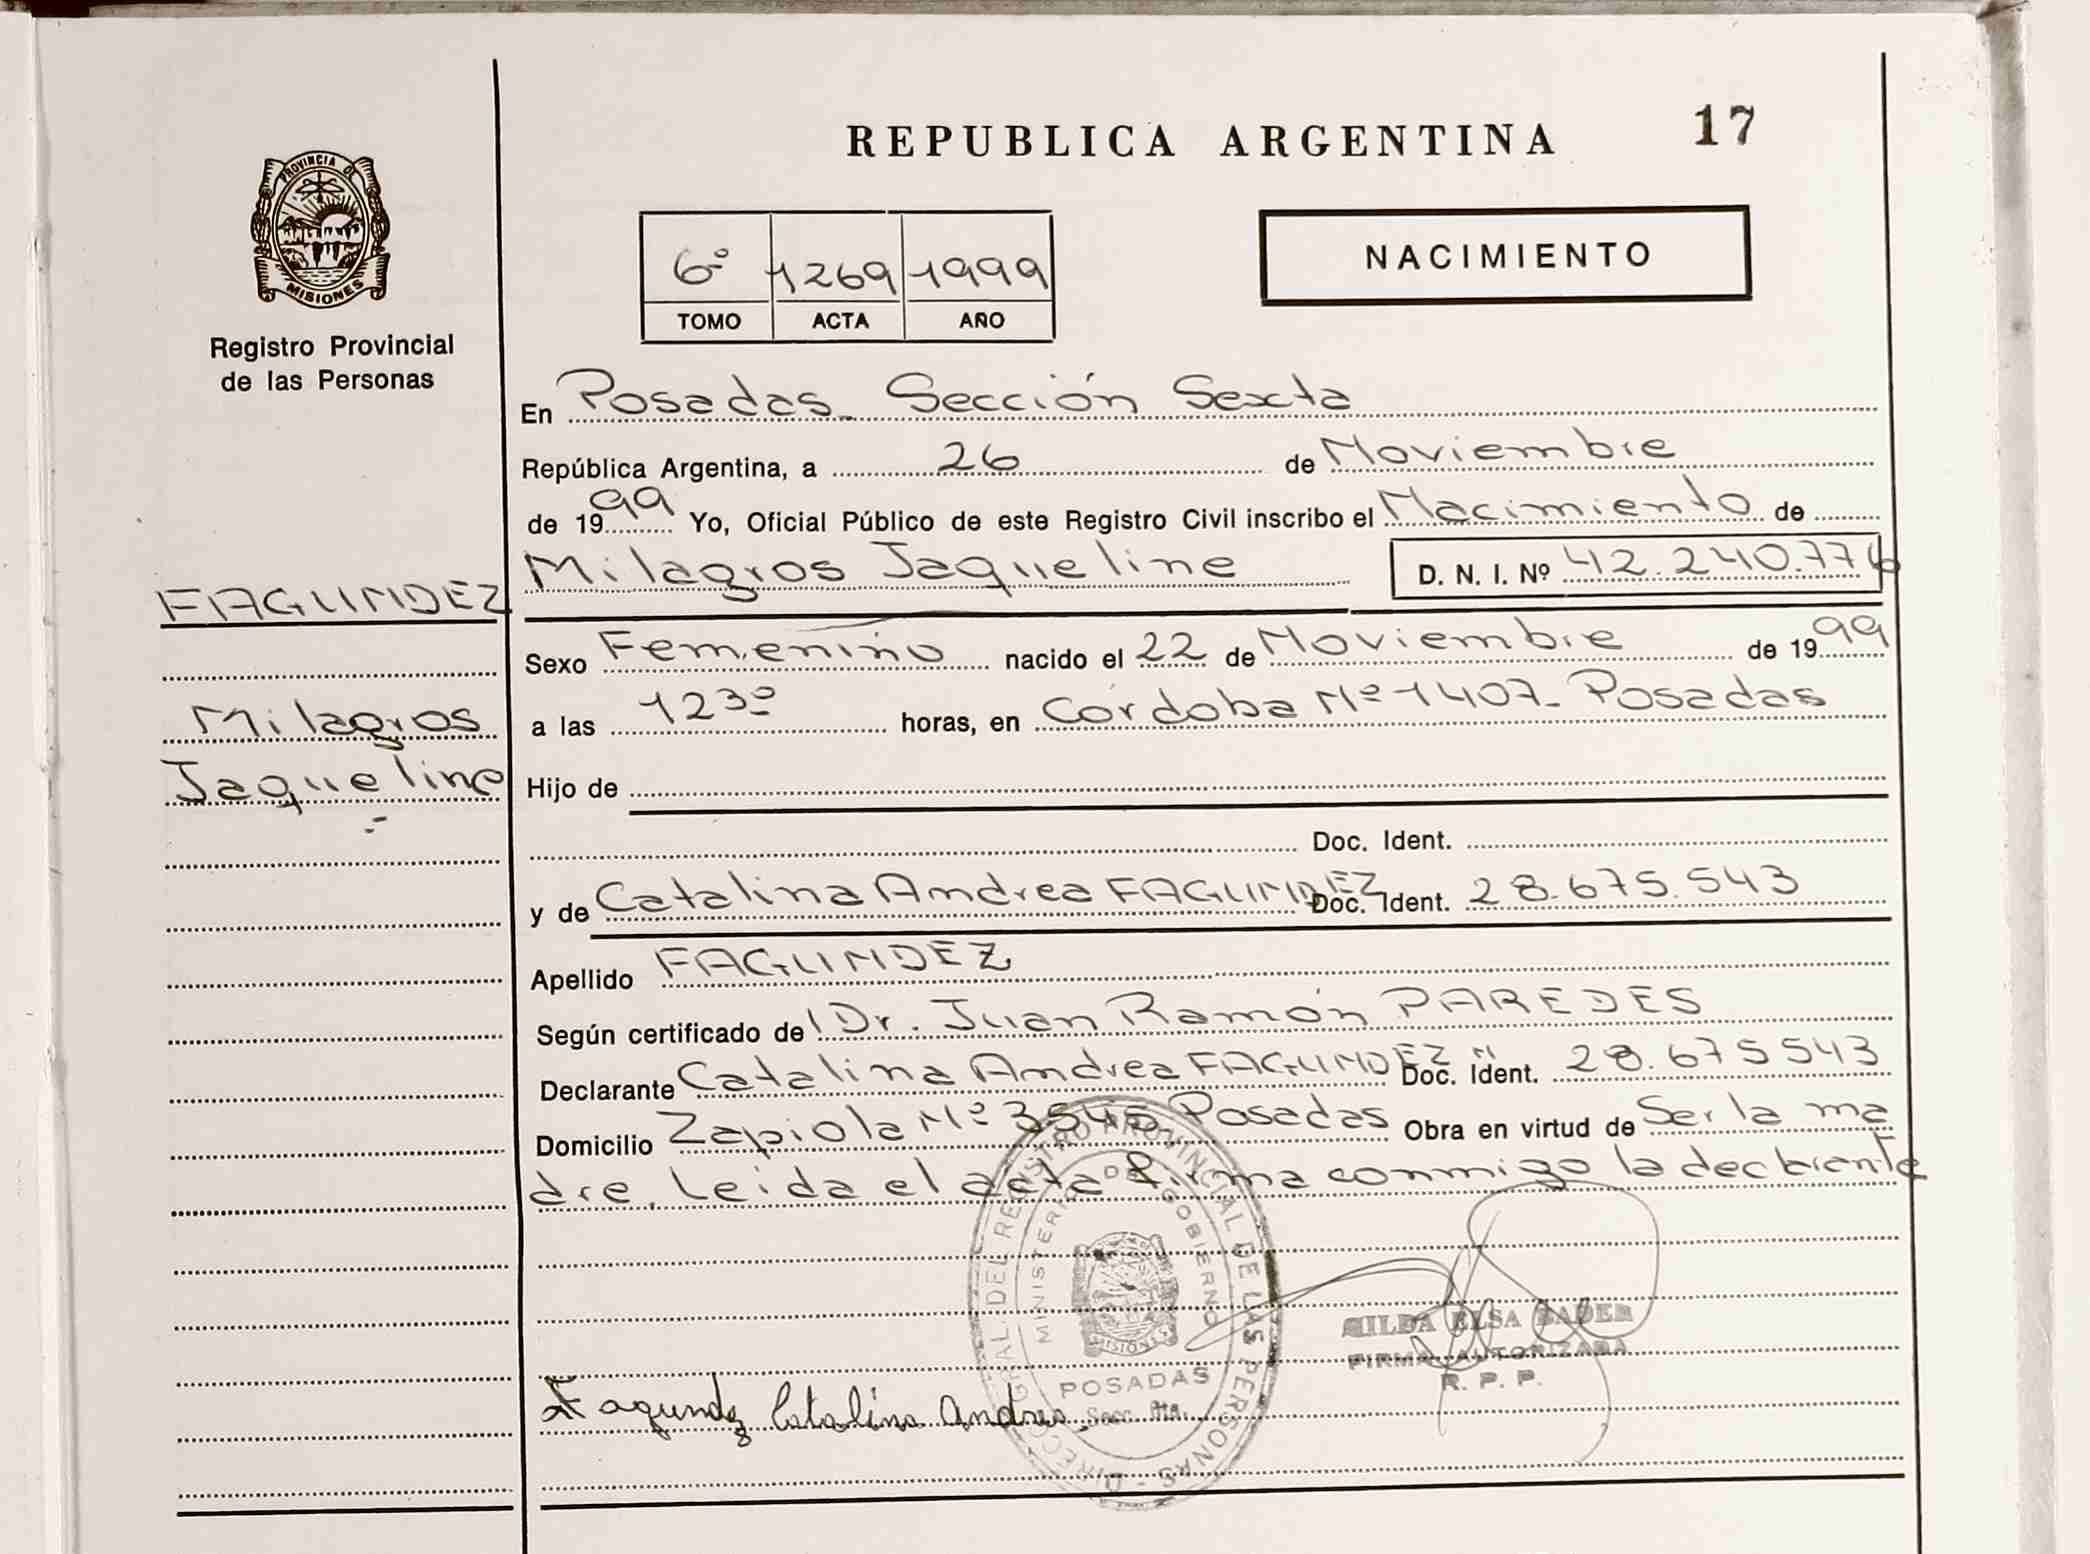 REPUBLICA ARGENTINA 17
PROVINCIA DE
MISIONES
Registro Provincial
de las Personas
6º 1269 1999
TOMO ACTA AÑO
NACIMIENTO
En Posadas. Sección Sexta
República Argentina, a 26 de Noviembre
de 1999 Yo, Oficial Público de este Registro Civil inscribo el Nacimiento de
Milagros Jaqueline D. N. I. Nº 42.240.776
FAGUNDEZ
Milagros
Jaqueline
Sexo Femenino nacido el 22 de Noviembre de 1999
a las 1230 horas, en Córdoba Nº 1407- Posadas
Hijo de
Doc. Ident.
y de Catalina Andrea FAGUNDEZ Doc. Ident. 28.675.543
Apellido FAGUNDEZ
Según certificado de Dr. Juan Ramón PAREDES
Declarante Catalina Andrea FAGUNDEZ Doc. Ident. 28.675543
Domicilio Zapiola Nº 3545 Posadas Obra en virtud de Ser la ma
dre. Leida el acta firma conmigo la declarante
DIRECC. GRAL. DEL REGISTRO PROVINCIAL DE LAS PERSONAS
MINISTERIO DE GOBIERNO
MISIONES
POSADAS
Secc. 6ta.
ELSA BADER
FIRMA AUTORIZADA
R. P. P.
Fagundez Catalina Andrea